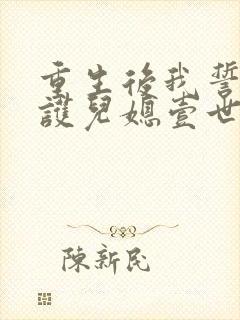 重生後我誓
護兒媳壹世
陳新民